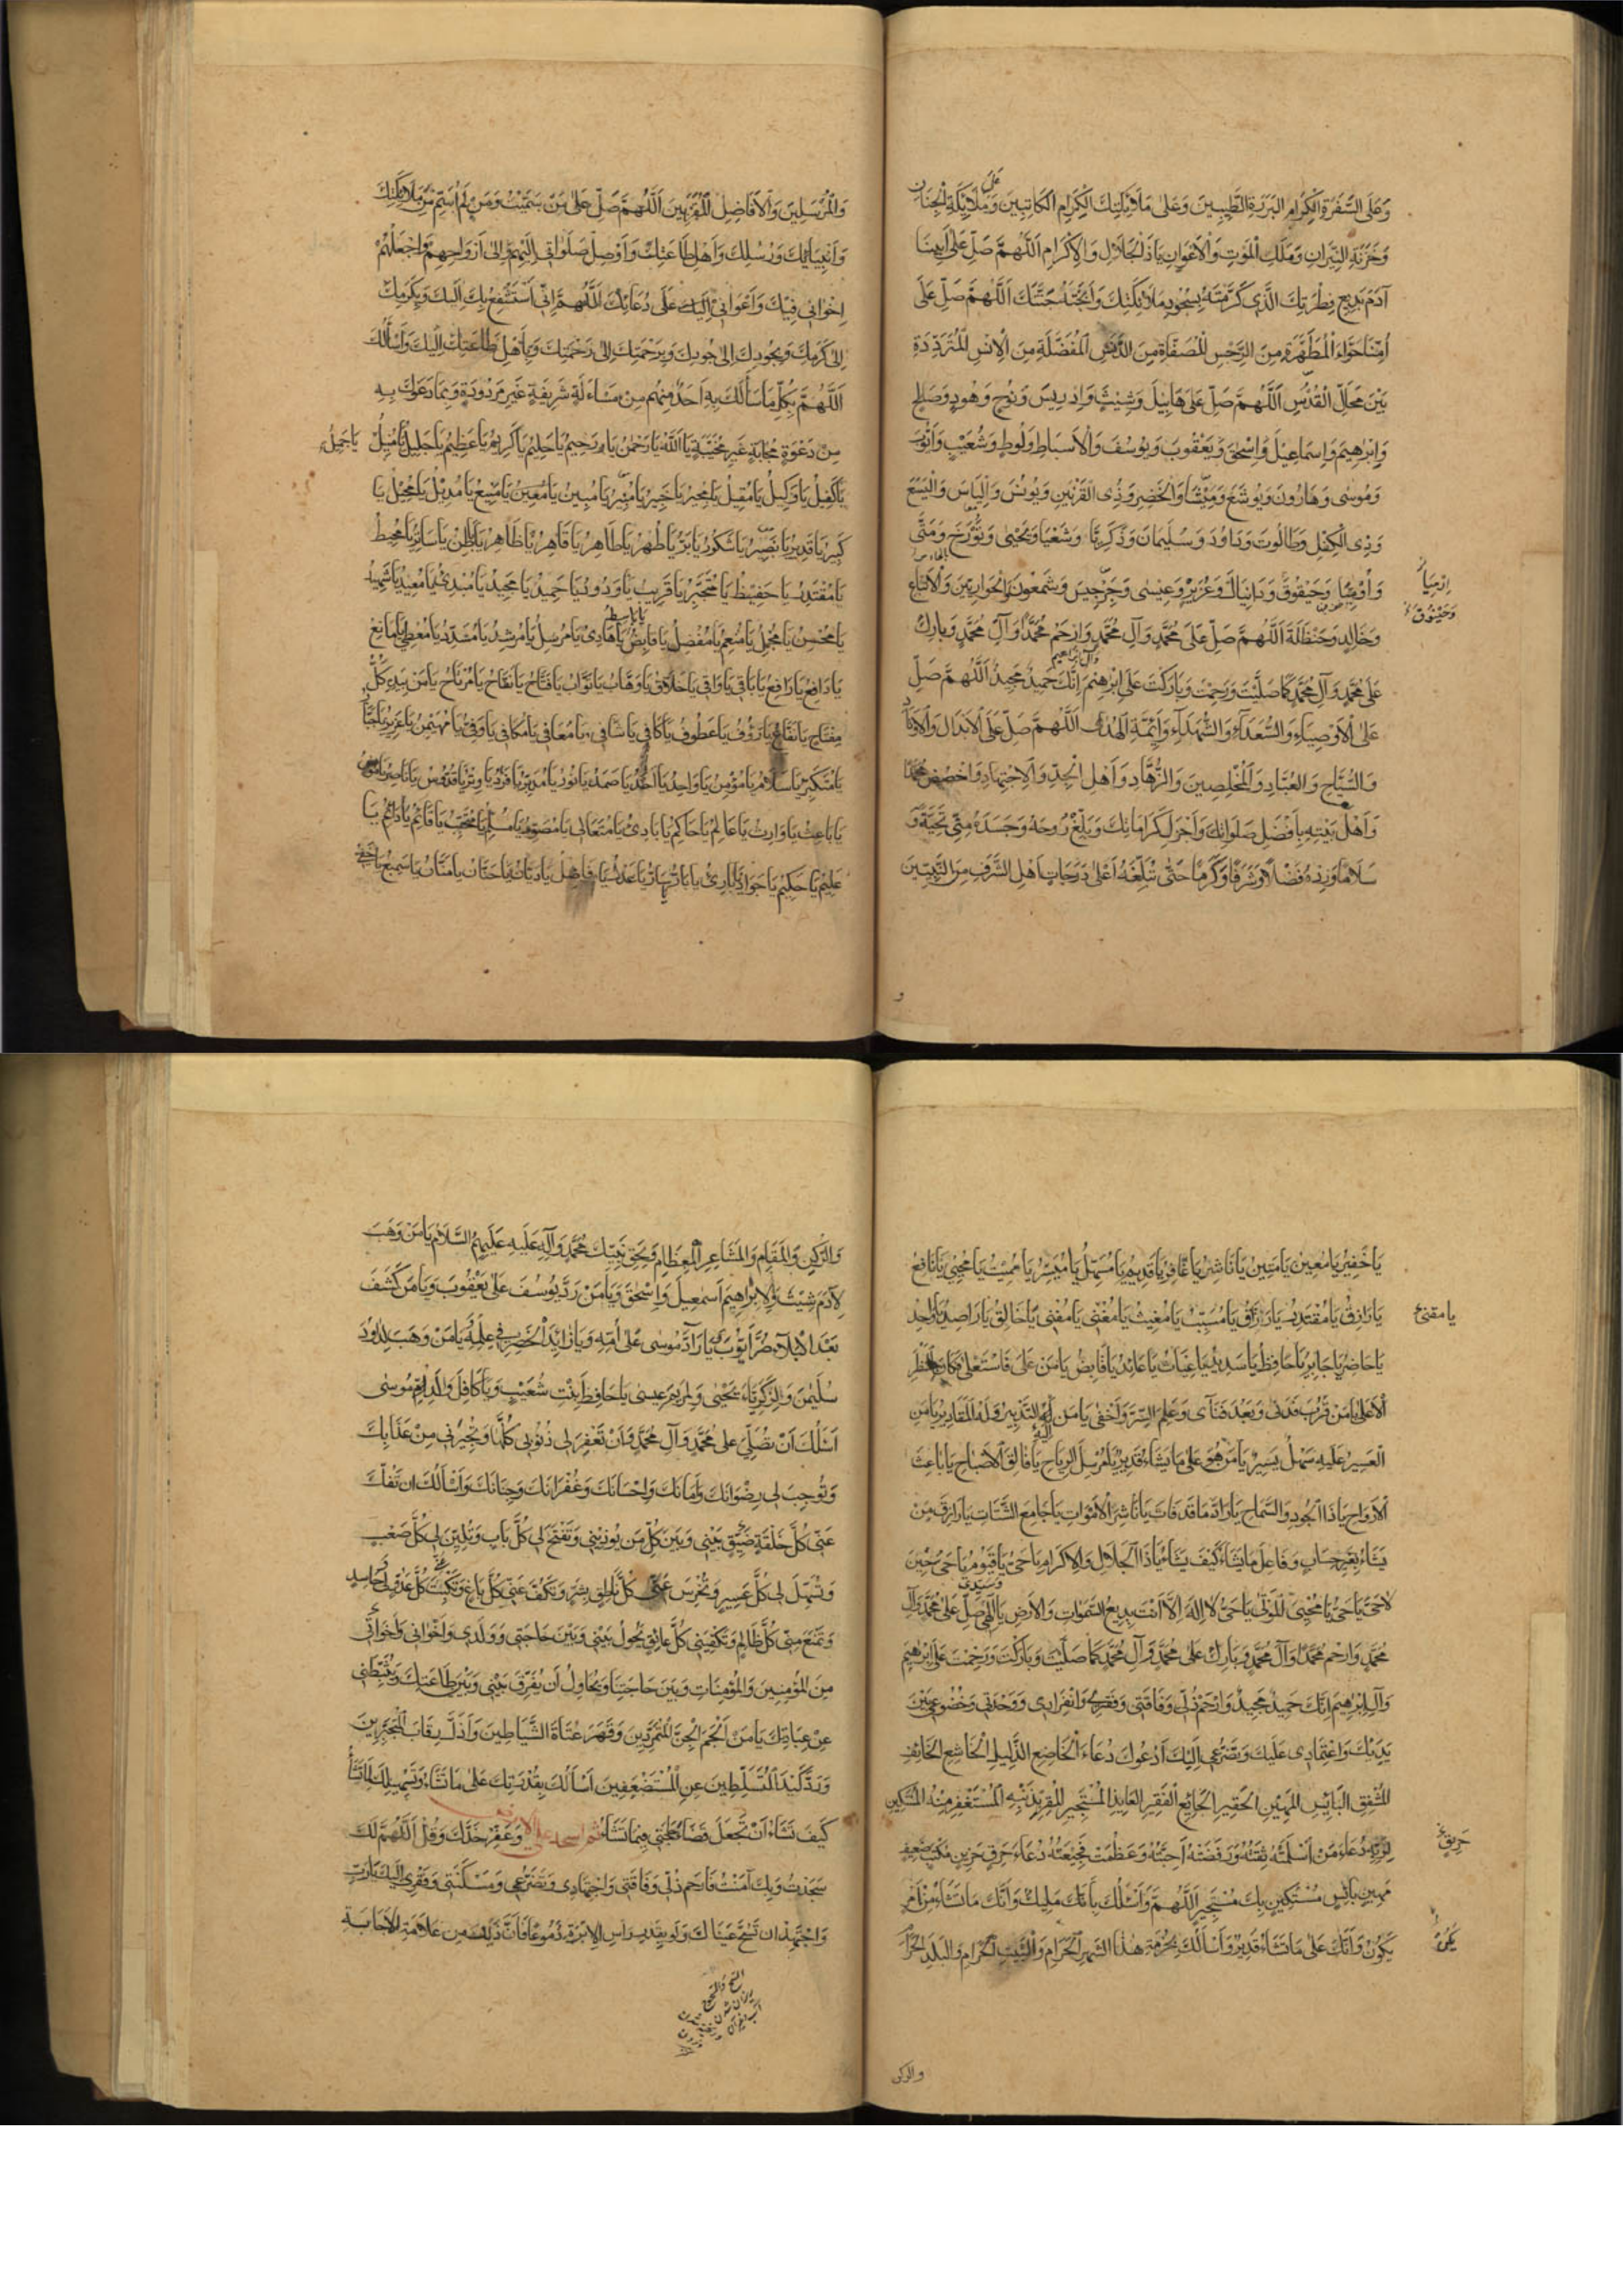 وَعَلَى السَّفَرَةِ الْكِرَامِ الْبَرَرَةِ الطَّيِّبِينَ وَعَلَى مَلَائِكَتِكَ الْكِرَامِ الْكَاتِبِينَ وَعَلَى مَلَائِكَةِ الْجِنَانِ
وَخَزَنَةِ النِّيرَانِ وَمَلَكِ الْمَوْتِ وَالْأَعْوَانِ يَا ذَا الْجَلَالِ وَالْإِكْرَامِ اَللَّهُمَّ صَلِّ عَلَى أَبِينَا
آدَمَ بَدِيعِ فِطْرَتِكَ الَّذِي كَرَّمْتَهُ بِسُجُودِ مَلَائِكَتِكَ وَأَبَحْتَهُ جَنَّتَكَ اَللَّهُمَّ صَلِّ عَلَى
أُمِّنَا حَوَّاءَ الْمُطَهَّرَةِ مِنَ الرِّجْسِ الْمُصَفَّاةِ مِنَ الدَّنَسِ الْمُفَضَّلَةِ مِنَ الْإِنْسِ الْمُتَرَدِّدَةِ
بَيْنَ مَحَالِّ الْقُدْسِ اَللَّهُمَّ صَلِّ عَلَى هَابِيلَ وَشِيثَ وَإِدْرِيسَ وَنُوحٍ وَهُودٍ وَصَالِحٍ
وَإِبْرَهِيمَ وَإِسْمَاعِيلَ وَإِسْحَقَ وَيَعْقُوبَ وَيُوسُفَ وَالْأَسْبَاطِ وَلُوطٍ وَشُعَيْبٍ وَأَيُّوبَ
وَمُوسَى وَهَارُونَ وَيُوشَعَ وَمِيشَا وَالْخَضِرِ وَذِي الْقَرْنَيْنِ وَيُونُسَ وَإِلْيَاسَ وَالْيَسَعَ
وَذِي الْكِفْلِ وَطَالُوتَ وَدَاوُدَ وَسُلَيْمَانَ وَزَكَرِيَّا وَشَعْيَا وَيَحْيَى وَتُورَخَ وَمَتَّى
إِرْمِيَا وَحَيْقُوقَ وَدَانِيَالَ وَعُزَيْرٍ وَعِيسَى وَجِرْجِيسَ وَشَمْعُونَ وَالْحَوَارِيِّينَ وَالْأَتْبَاعِ
وَخَالِدٍ وَحَنْظَلَةَ اَللَّهُمَّ صَلِّ عَلَى مُحَمَّدٍ وَآلِ مُحَمَّدٍ وَارْحَمْ مُحَمَّدًا وَآلَ مُحَمَّدٍ وَبَارِكْ
عَلَى مُحَمَّدٍ وَآلِ مُحَمَّدٍ كَمَا صَلَّيْتَ وَرَحِمْتَ وَبَارَكْتَ عَلَى إِبْرَهِيمَ وَآلِ إِبْرَاهِيمَ إِنَّكَ حَمِيدٌ مَجِيدٌ اَللَّهُمَّ صَلِّ
عَلَى الْأَوْصِيَاءِ وَالسُّعَدَاءِ وَالشُّهَدَاءِ وَأَئِمَّةِ الْهُدَى اَللَّهُمَّ صَلِّ عَلَى الْأَبْدَالِ وَالْأَوْتَادِ
وَالسُّيَّاحِ وَالْعُبَّادِ وَالْمُخْلِصِينَ وَالزُّهَّادِ وَأَهْلِ الْجِدِّ وَالْاِجْتِهَادِ وَاخْصُصْ مُحَمَّدًا
وَأَهْلَ بَيْتِهِ بِأَفْضَلِ صَلَوَاتِكَ وَأَجْزَلِ كَرَامَاتِكَ وَبَلِّغْ رُوحَهُ وَجَسَدَهُ مِنِّي تَحِيَّةً وَ
سَلَامًا وَزِدْهُ فَضْلًا وَشَرَفًا وَكَرَمًا حَتَّى تُبَلِّغَهُ أَعْلَى دَرَجَاتِ أَهْلِ الشَّرَفِ مِنَ النَّبِيِّينَ
وَالْمُرْسَلِينَ وَالْأَفَاضِلِ الْمُقَرَّبِينَ اَللَّهُمَّ صَلِّ عَلَى مَنْ سَمَّيْتُ وَمَنْ لَمْ أُسَمِّ مِنْ مَلَائِكَتِكَ
وَأَنْبِيَائِكَ وَرُسُلِكَ وَأَهْلِ طَاعَتِكَ وَأَوْصِلْ صَلَوَاتِي إِلَيْهِمْ وَإِلَى أَرْوَاحِهِمْ وَاجْعَلْهُمْ
إِخْوَانِي فِيكَ وَأَعْوَانِي إِلَيْكَ عَلَى دُعَائِكَ اَللَّهُمَّ إِنِّي أَسْتَشْفِعُ بِكَ إِلَيْكَ وَبِكَرَمِكَ
إِلَى كَرَمِكَ وَبِجُودِكَ إِلَى جُودِكَ وَبِرَحْمَتِكَ إِلَى رَحْمَتِكَ وَبِأَهْلِ طَاعَتِكَ إِلَيْكَ وَأَسْأَلُكَ
اَللَّهُمَّ بِكُلِّ مَا سَأَلَكَ بِهِ أَحَدٌ مِنْهُمْ مِنْ مَسْاَلَةٍ شَرِيفَةٍ غَيْرِ مَرْدُودَةٍ وَبِمَا دَعَوْكَ بِهِ
مِنْ دَعْوَةٍ مُجَابَةٍ غَيْرِ مُخَيَّبَةٍ يَا اَللَّهُ يَا رَحْمَنُ يَا رَحِيمُ يَا حَلِيمُ يَا كَرِيمُ يَا عَظِيمُ يَا جَلِيلُ يَا مُنِيلُ يَا جَمِيلُ
يَا كَفِيلُ يَا وَكِيلُ يَا مُقِيلُ يَا مُجِيرُ يَا خَبِيرُ يَا مُنِيرُ يَا مُبِينُ يَا مُعِينُ يَا مَنِيعُ يَا مُدِيلُ يَا مُحِيلُ يَا
كَبِيرُ يَا قَدِيرُ يَا بَصِيرُ يَا شَكُورُ يَا بَرُّ يَا طُهْرُ يَا طَاهِرُ يَا قَاهِرُ يَا ظَاهِرُ يَا بَاطِنُ يَا سَاتِرُ يَا مُحِيطُ
يَا مُقْتَدِرُ يَا حَفِيظُ يَا مُتَجَبِّرُ يَا قَرِيبُ يَا وَدُودُ يَا حَمِيدُ يَا مَجِيدُ يَا مُبْدِئُ يَا مُعِيدُ يَا شَهِيدُ
يَا مُحْسِنُ يَا مُجْمِلُ يَا مُنْعِمُ يَا مُفْضِلُ يَا قَابِضُ يَا بَاسِطُ يَا هَادِي يَا مُرْسِلُ يَا مُرْشِدُ يَا مُسَدِّدُ يَا مُعْطِي يَا مَانِعُ
يَا دَافِعُ يَا رَافِعُ يَا بَاقِي يَا وَاقِي يَا خَلَّاقُ يَا وَهَّابُ يَا تَوَّابُ يَا فَتَّاحُ يَا نَفَّاحُ يَا مُرْتَاحُ يَا مَنْ بِيَدِهِ كُلُّ
مِفْتَاحٍ يَا نَفَّاعُ يَا رَؤُوفُ يَا عَطُوفُ يَا كَافِي يَا شَافِي يَا مُعَافِي يَا مُكَافِي يَا وَفِيُّ يَا مُهَيْمِنُ يَا عَزِيزُ يَا جَبَّارُ
يَا مُتَكَبِّرُ يَا سَلَامُ يَا مُؤْمِنُ يَا وَاحِدُ يَا أَحَدُ يَا صَمَدُ يَا نُورُ يَا مُدَبِّرُ يَا فَرْدُ يَا وِتْرُ يَا قُدُّوسُ يَا نَاصِرُ يَا مُونِسُ
يَا بَاعِثُ يَا وَارِثُ يَا عَالِمُ يَا حَاكِمُ يَا بَادِئُ يَا مُتَعَالِي يَا مُصَوِّرُ يَا مُسَلِّمُ يَا مُتَحَبِّبُ يَا قَائِمُ يَا دَائِمُ يَا
عَلِيمُ يَا حَكِيمُ يَا جَوَادُ يَا بَارِئُ يَا بَارُّ يَا سَارُّ يَا عَدْلُ يَا فَاضِلُ يَا دَيَّانُ يَا حَنَّانُ يَا مَنَّانُ يَا سَمِيعُ يَا خَفِيُّ
يَا خَفِيرُ يَا مُعِينُ يَا مَتِينُ يَا نَاشِرُ يَا غَافِرُ يَا قَدِيمُ يَا مُسَهِّلُ يَا مُيَسِّرُ يَا مُمِيتُ يَا مُحْيِي يَا نَافِعُ
يَا رَازِقُ يَا مُقْتَدِرُ يَا رَزَّاقُ يَا مُسَبِّبُ يَا مُغِيثُ يَا مُغْنِي يَا مُقْنِي يَا خَالِقُ يَا رَاصِدُ يَا وَاحِدُ
يَا حَاضِرُ يَا جَابِرُ يَا حَافِظُ يَا شَدِيدُ يَا غِيَاثُ يَا عَائِدُ يَا قَابِضُ يَا مَنْ عَلَا فَاسْتَعْلَى فَكَانَ بِالْمَنْظَرِ
الْأَعْلَى يَا مَنْ قَرُبَ فَدَنَى وَبَعُدَ فَنَآى وَعَلِمَ السِّرَّ وَأَخْفَى يَا مَنْ إِلَيْهِ التَّدْبِيرُ وَلَهُ الْمَقَادِيرُ يَا مَنِ
الْعَسِيرُ عَلَيْهِ سَهْلٌ يَسِيرٌ يَا مَنْ هُوَ عَلَى مَا يَشَاءُ قَدِيرٌ يَا مُرْسِلَ الرِّيَاحِ يَا فَالِقَ الْأَصْبَاحِ يَا بَاعِثَ
الْأَرْوَاحِ يَا ذَا الْجُودِ وَالسَّمَاحِ يَا رَادَّ مَا قَدْ فَاتَ يَا نَاشِرَ الْأَمْوَاتِ يَا جَامِعَ الشَّتَاتِ يَا رَازِقَ مَنْ
يَشَاءُ بِغَيْرِ حِسَابٍ وَفَاعِلَ مَا يَشَاءُ كَيْفَ يَشَاءُ يَا ذَا الْجَلَالِ وَالْإِكْرَامِ يَا حَيُّ يَا قَيُّومُ يَا حَيُّ حِينَ
لَا حَيَّ يَا حَيُّ يَا مُحْيِيَ الْمَوْتَى يَا حَيُّ لَا إِلَهَ إِلَّا أَنْتَ بَدِيعُ السَّمَوَاتِ وَالْأَرْضِ يَا إِلَهِي وَسَيِّدِي صَلِّ عَلَى مُحَمَّدٍ وَآلِ
مُحَمَّدٍ وَارْحَمْ مُحَمَّدًا وَآلَ مُحَمَّدٍ وَبَارِكْ عَلَى مُحَمَّدٍ وَآلِ مُحَمَّدٍ كَمَا صَلَّيْتَ وَبَارَكْتَ وَرَحِمْتَ عَلَى إِبْرَهِيمَ
وَآلِ إِبْرَهِيمَ إِنَّكَ حَمِيدٌ مَجِيدٌ وَارْحَمْ ذُلِّي وَفَاقَتِي وَفَقْرِي وَانْفِرَادِي وَوَحْدَتِي وَخُضُوعِي بَيْنَ
يَدَيْكَ وَاعْتِمَادِي عَلَيْكَ وَتَضَرُّعِي إِلَيْكَ أَدْعُوكَ دُعَاءَ الْخَاضِعِ الذَّلِيلِ الْخَاشِعِ الْخَائِفِ
الْمُشْفِقِ الْبَائِسِ الْمَهِينِ الْحَقِيرِ الْجَائِعِ الْفَقِيرِ الْعَائِذِ الْمُسْتَجِيرِ الْمُقِرِّ بِذَنْبِهِ الْمُسْتَغْفِرِ مِنْهُ الْمُسْتَكِينِ
لِرَبِّهِ دُعَاءَ مَنْ أَسْلَمَتْهُ ثِقَتُهُ وَرَفَضَتْهُ أَحِبَّتُهُ وَعَظُمَتْ فَجِيعَتُهُ دُعَاءَ حَرِقٍ حَزِينٍ ضَعِيفٍ
مَهِينٍ بَائِسٍ مُسْتَكِينٍ بِكَ مُسْتَجِيرٍ اَللَّهُمَّ وَأَسْئَلُكَ بِأَنَّكَ مَلِيكٌ وَأَنَّكَ مَا تَشَاءُ مِنْ أَمْرٍ
يَكُونُ وَأَنَّكَ عَلَى مَا تَشَاءُ قَدِيرٌ وَأَسْأَلُكَ بِحُرْمَةِ هَذَا الشَّهْرِ الْحَرَامِ وَالْبَيْتِ الْحَرَامِ وَالْبَلَدِ الْحَرَامِ
يا مقنع
حَرِيقٍ
يَكُنْ
والركن
وَالرُّكْنِ وَالْمَقَامِ وَالْمَشَاعِرِ الْعِظَامِ وَبِحَقِّ نَبِيِّكَ مُحَمَّدٍ وَآلِهِ عَلَيْهِ عَلَيْهِمُ السَّلَامُ يَا مَنْ وَهَبَ
لِآدَمَ شِيثَ وَلِإِبْرَاهِيمَ إِسْمَعِيلَ وَإِسْحَقَ وَيَا مَنْ رَدَّ يُوسُفَ عَلَى يَعْقُوبَ وَيَا مَنْ كَشَفَ
بَعْدَ الْبَلَاءِ ضُرَّ أَيُّوبَ يَا رَادَّ مُوسَى عَلَى أُمِّهِ وَيَا زَائِدَ الْخَضِرِ فِي عِلْمِهِ يَا مَنْ وَهَبَ لِدَاوُدَ
سُلَيْمَنَ وَلِزَكَرِيَّاءَ يَحْيَى وَلِمَرْيَمَ عِيسَى يَا حَافِظَ بِنْتِ شُعَيْبٍ وَيَا كَافِلَ وَلَدِ أُمِّ مُوسَى
أَسْئَلُكَ أَنْ تُصَلِّيَ عَلَى مُحَمَّدٍ وَآلِ مُحَمَّدٍ وَأَنْ تَغْفِرَ لِي ذُنُوبِي كُلَّهَا وَتُجِيرَنِي مِنْ عَذَابِكَ
وَتُوجِبَ لِي رِضْوَانَكَ وَأَمَانَكَ وَإِحْسَانَكَ وَغُفْرَانَكَ وَجِنَانَكَ وَأَسْأَلُكَ أَنْ تَفُكَّ
عَنِّي كُلَّ حَلْقَةِ ضِيقٍ بَيْنِي وَبَيْنَ كُلِّ مَنْ يُؤْذِينِي وَتَفْتَحَ لِي كُلَّ بَابٍ وَتُلَيِّنَ لِي كُلَّ صَعْبٍ
وَتُسَهِّلَ لِي كُلَّ عَسِيرٍ وَتُخْرِسَ عَنِّي كُلَّ نَاطِقٍ بِشَرٍّ وَتَكُفَّ عَنِّي كُلَّ بَاغٍ وَتَكْبِتَ كُلَّ عَدُوٍّ لِي وَحَاسِدٍ
وَتَمْنَعَ مِنِّي كُلَّ ظَالِمٍ وَتَكْفِيَنِي كُلَّ عَائِقٍ يَحُولُ بَيْنِي وَبَيْنَ حَاجَتِي وَوَلَدِي وَإِخْوَانِي وَأَخَوَاتِي
مِنَ الْمُؤْمِنِينَ وَالْمُؤْمِنَاتِ وَبَيْنَ حَاجَتِنَا وَيُحَاوِلُ أَنْ يُفَرِّقَ بَيْنِي وَبَيْنَ طَاعَتِكَ وَيُثَبِّطَنِي
عَنْ عِبَادَتِكَ يَا مَنْ أَلْجَمَ الْجِنَّ الْمُتَمَرِّدِينَ وَقَهَرَ عُتَاةَ الشَّيَاطِينِ وَأَذَلَّ رِقَابَ الْمُتَجَبِّرِينَ
وَرَدَّ كَيْدَ الْمُتَسَلِّطِينَ عَنِ الْمُسْتَضْعَفِينَ أَسْأَلُكَ بِقُدْرَتِكَ عَلَى مَا تَشَاءُ وَتَسْهِيلِكَ لِمَا تَشَاءُ
كَيْفَ تَشَاءُ أَنْ تَجْعَلَ قَضَاءَ حَاجَتِي فِيمَا تَشَاءُ ثم اسجد على الارض وَعَفِّرْ خَدَّكَ وَقُلْ اَللَّهُمَّ لَكَ
سَجَدْتُ وَبِكَ آمَنْتُ فَارْحَمْ ذُلِّي وَفَاقَتِي وَاجْتِهَادِي وَتَضَرُّعِي وَمَسْكَنَتِي وَفَقْرِي إِلَيْكَ يَا رَبِّ
وَاجْتَهِدْ أَنْ تَسُحَّ عَيْنَاكَ وَلَوْ بِقَدْرِ رَأْسِ الْإِبْرَةِ دُمُوعًا فَإِنَّ ذَلِكَ مِنْ عَلَامَةِ الْإِجَابَةِ